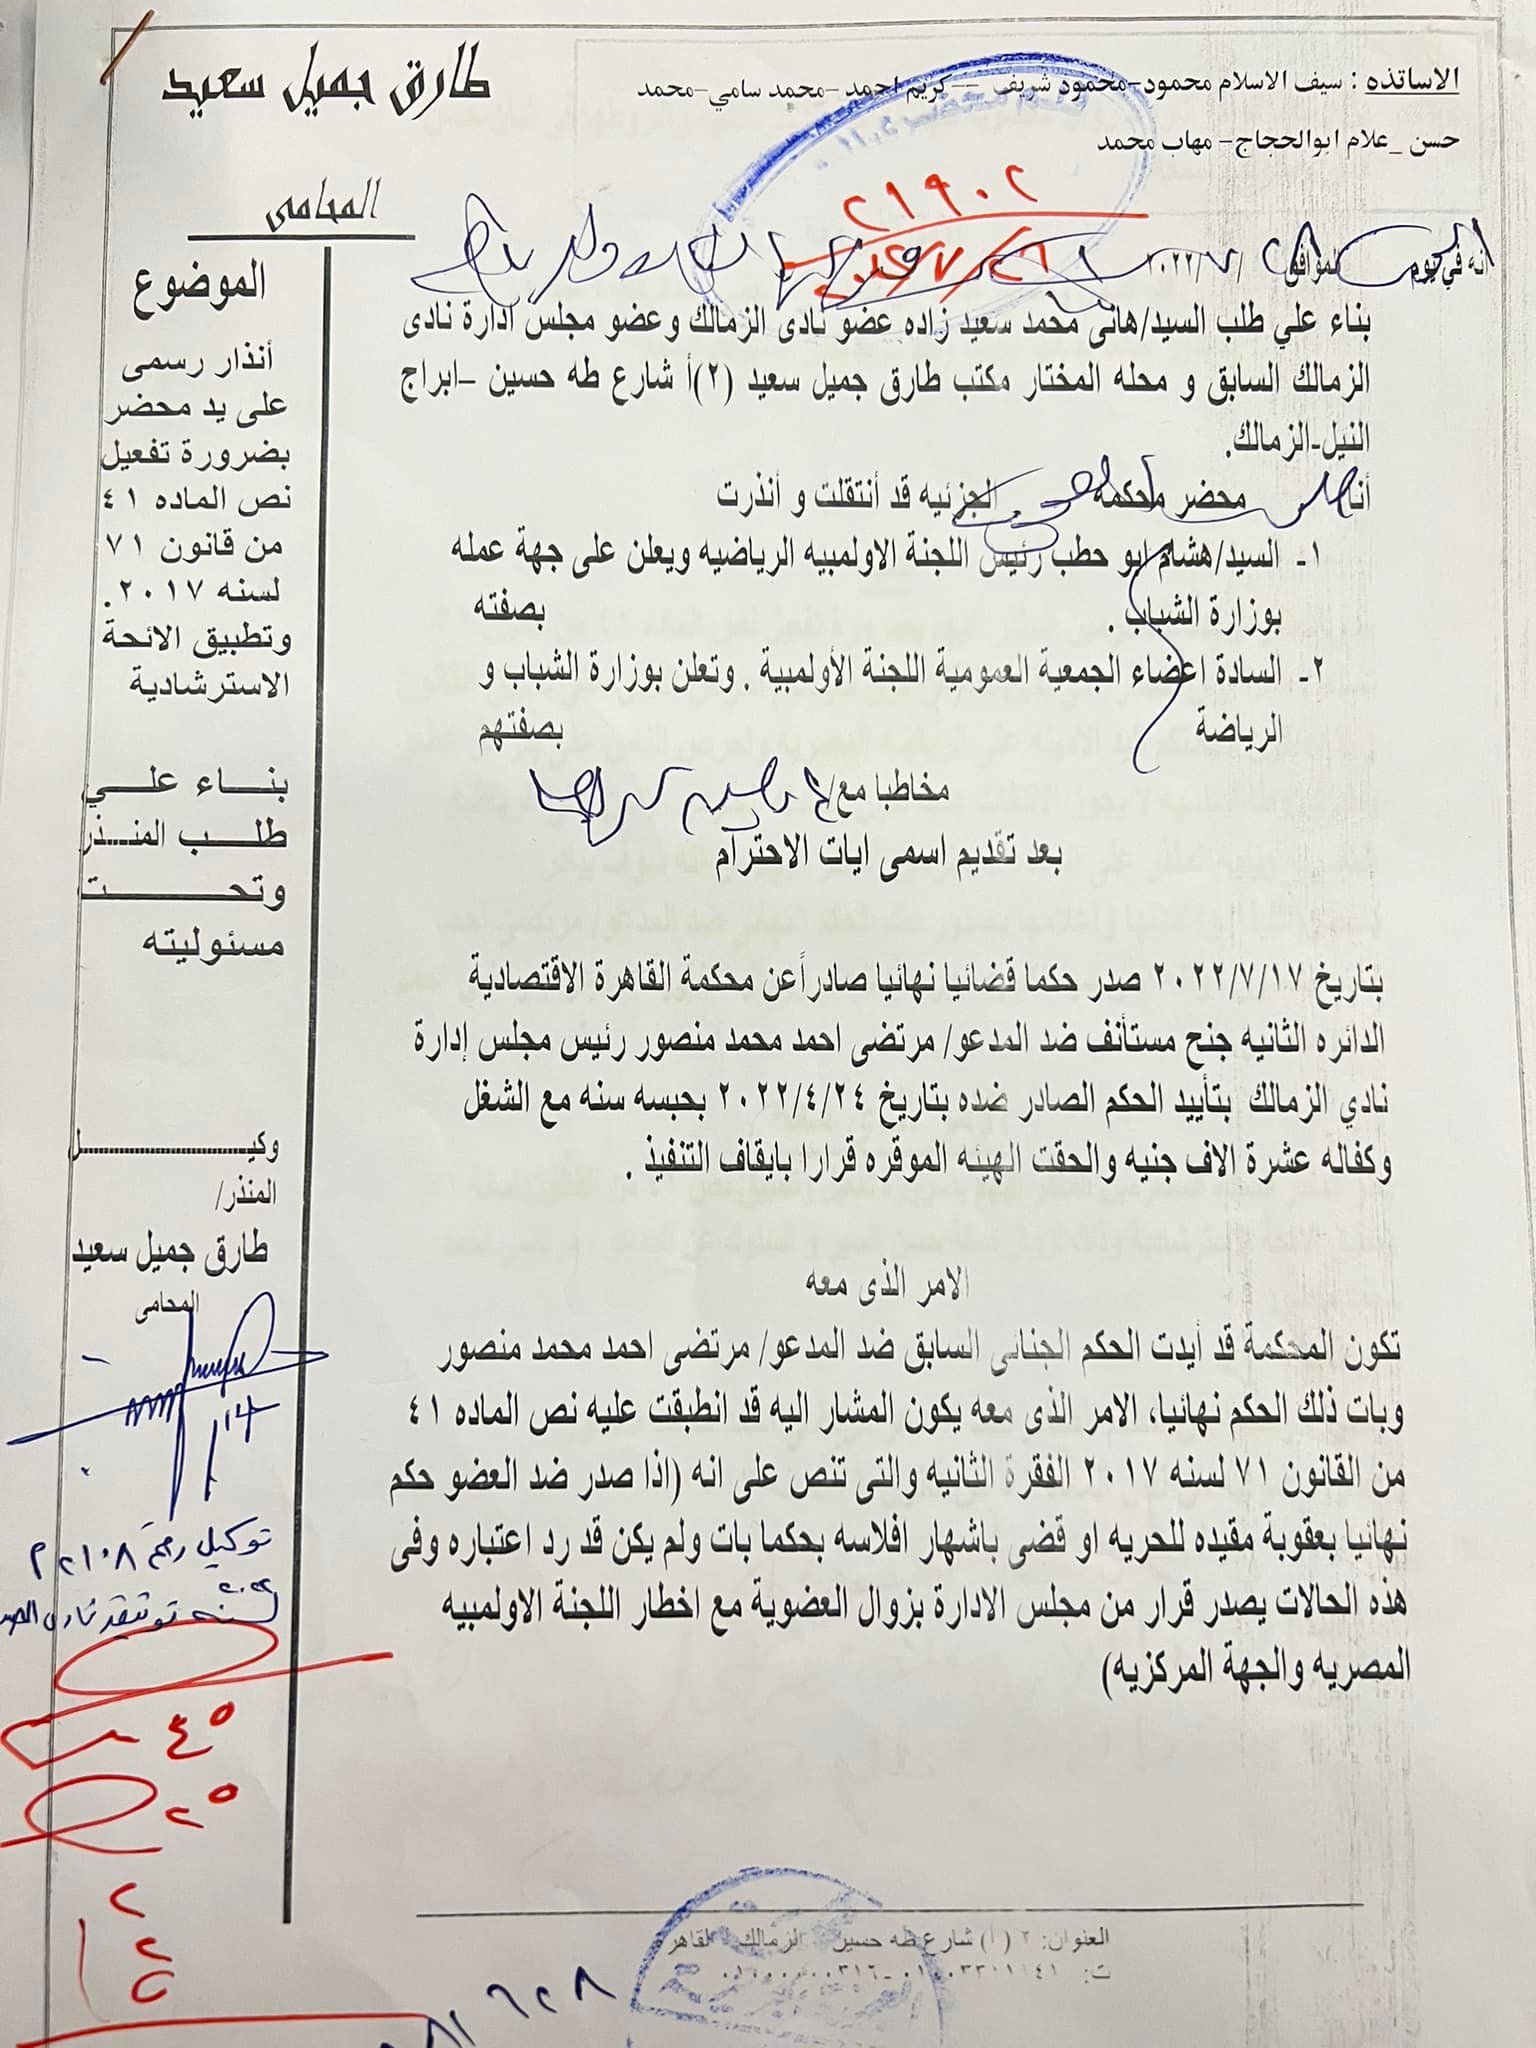 طارق جميل سعيد
المحامى
الاساتذه : سيف الاسلام محمود-محمود شريف --كريم احمد -محمد سامي-محمد
حسن _علام ابوالحجاج- مهاب محمد
٢١٩٠٢
انه في يوم الموافق / ٧ /٢٠٢٢
بناء علي طلب السيد/هانى محمد سعيد زاده عضو نادى الزمالك وعضو مجلس ادارة نادى
الزمالك السابق و محله المختار مكتب طارق جميل سعيد (٢)أ شارع طه حسين –ابراج
النيل-الزمالك.
أنا محضر محكمة الجزئيه قد أنتقلت و أنذرت
١- السيد/هشام ابو حطب رئيس اللجنة الاولمبيه الرياضيه ويعلن على جهة عمله
بوزارة الشباب . بصفته
٢- السادة اعضاء الجمعية العمومية اللجنة الأولمبية . وتعلن بوزارة الشباب و
الرياضة بصفتهم
مخاطبا مع/
بعد تقديم اسمى ايات الاحترام
بتاريخ ٢٠٢٢/٧/١٧ صدر حكما قضائيا نهائيا صادراً عن محكمة القاهرة الاقتصادية
الدائره الثانيه جنح مستأنف ضد المدعو/ مرتضى احمد محمد منصور رئيس مجلس إدارة
نادي الزمالك بتأييد الحكم الصادر ضده بتاريخ ٢٠٢٢/٤/٢٤ بحبسه سنه مع الشغل
وكفاله عشرة الاف جنيه والحقت الهيئه الموقره قرارا بايقاف التنفيذ .
الامر الذى معه
تكون المحكمة قد أيدت الحكم الجنائى السابق ضد المدعو/ مرتضى احمد محمد منصور
وبات ذلك الحكم نهائيا، الامر الذى معه يكون المشار اليه قد انطبقت عليه نص الماده ٤١
من القانون ٧١ لسنه ٢٠١٧ الفقرة الثانيه والتى تنص على انه (اذا صدر ضد العضو حكم
نهائيا بعقوبة مقيده للحريه او قضى باشهار افلاسه بحكما بات ولم يكن قد رد اعتباره وفى
هذه الحالات يصدر قرار من مجلس الادارة بزوال العضوية مع اخطار اللجنة الاولمبيه
المصريه والجهة المركزيه)
الموضوع
أنذار رسمى
على يد محضر
بضرورة تفعيل
نص الماده ٤١
من قانون ٧١
لسنه ٢٠١٧.
وتطبيق الائحة
الاسترشادية
بنـــاء علـــي
طلـــب المنـــذر
وتحـــــــت
مسئوليته
وكيـــــــــل
المنذر/
طارق جميل سعيد
المحامى
توكيل رقم ٢١٠٨ م
لسنه ٢٠٢٢
٤٥
٢٥
٢
العنوان: ٢ (أ) شارع طه حسين الزمالك القاهرة
ت: